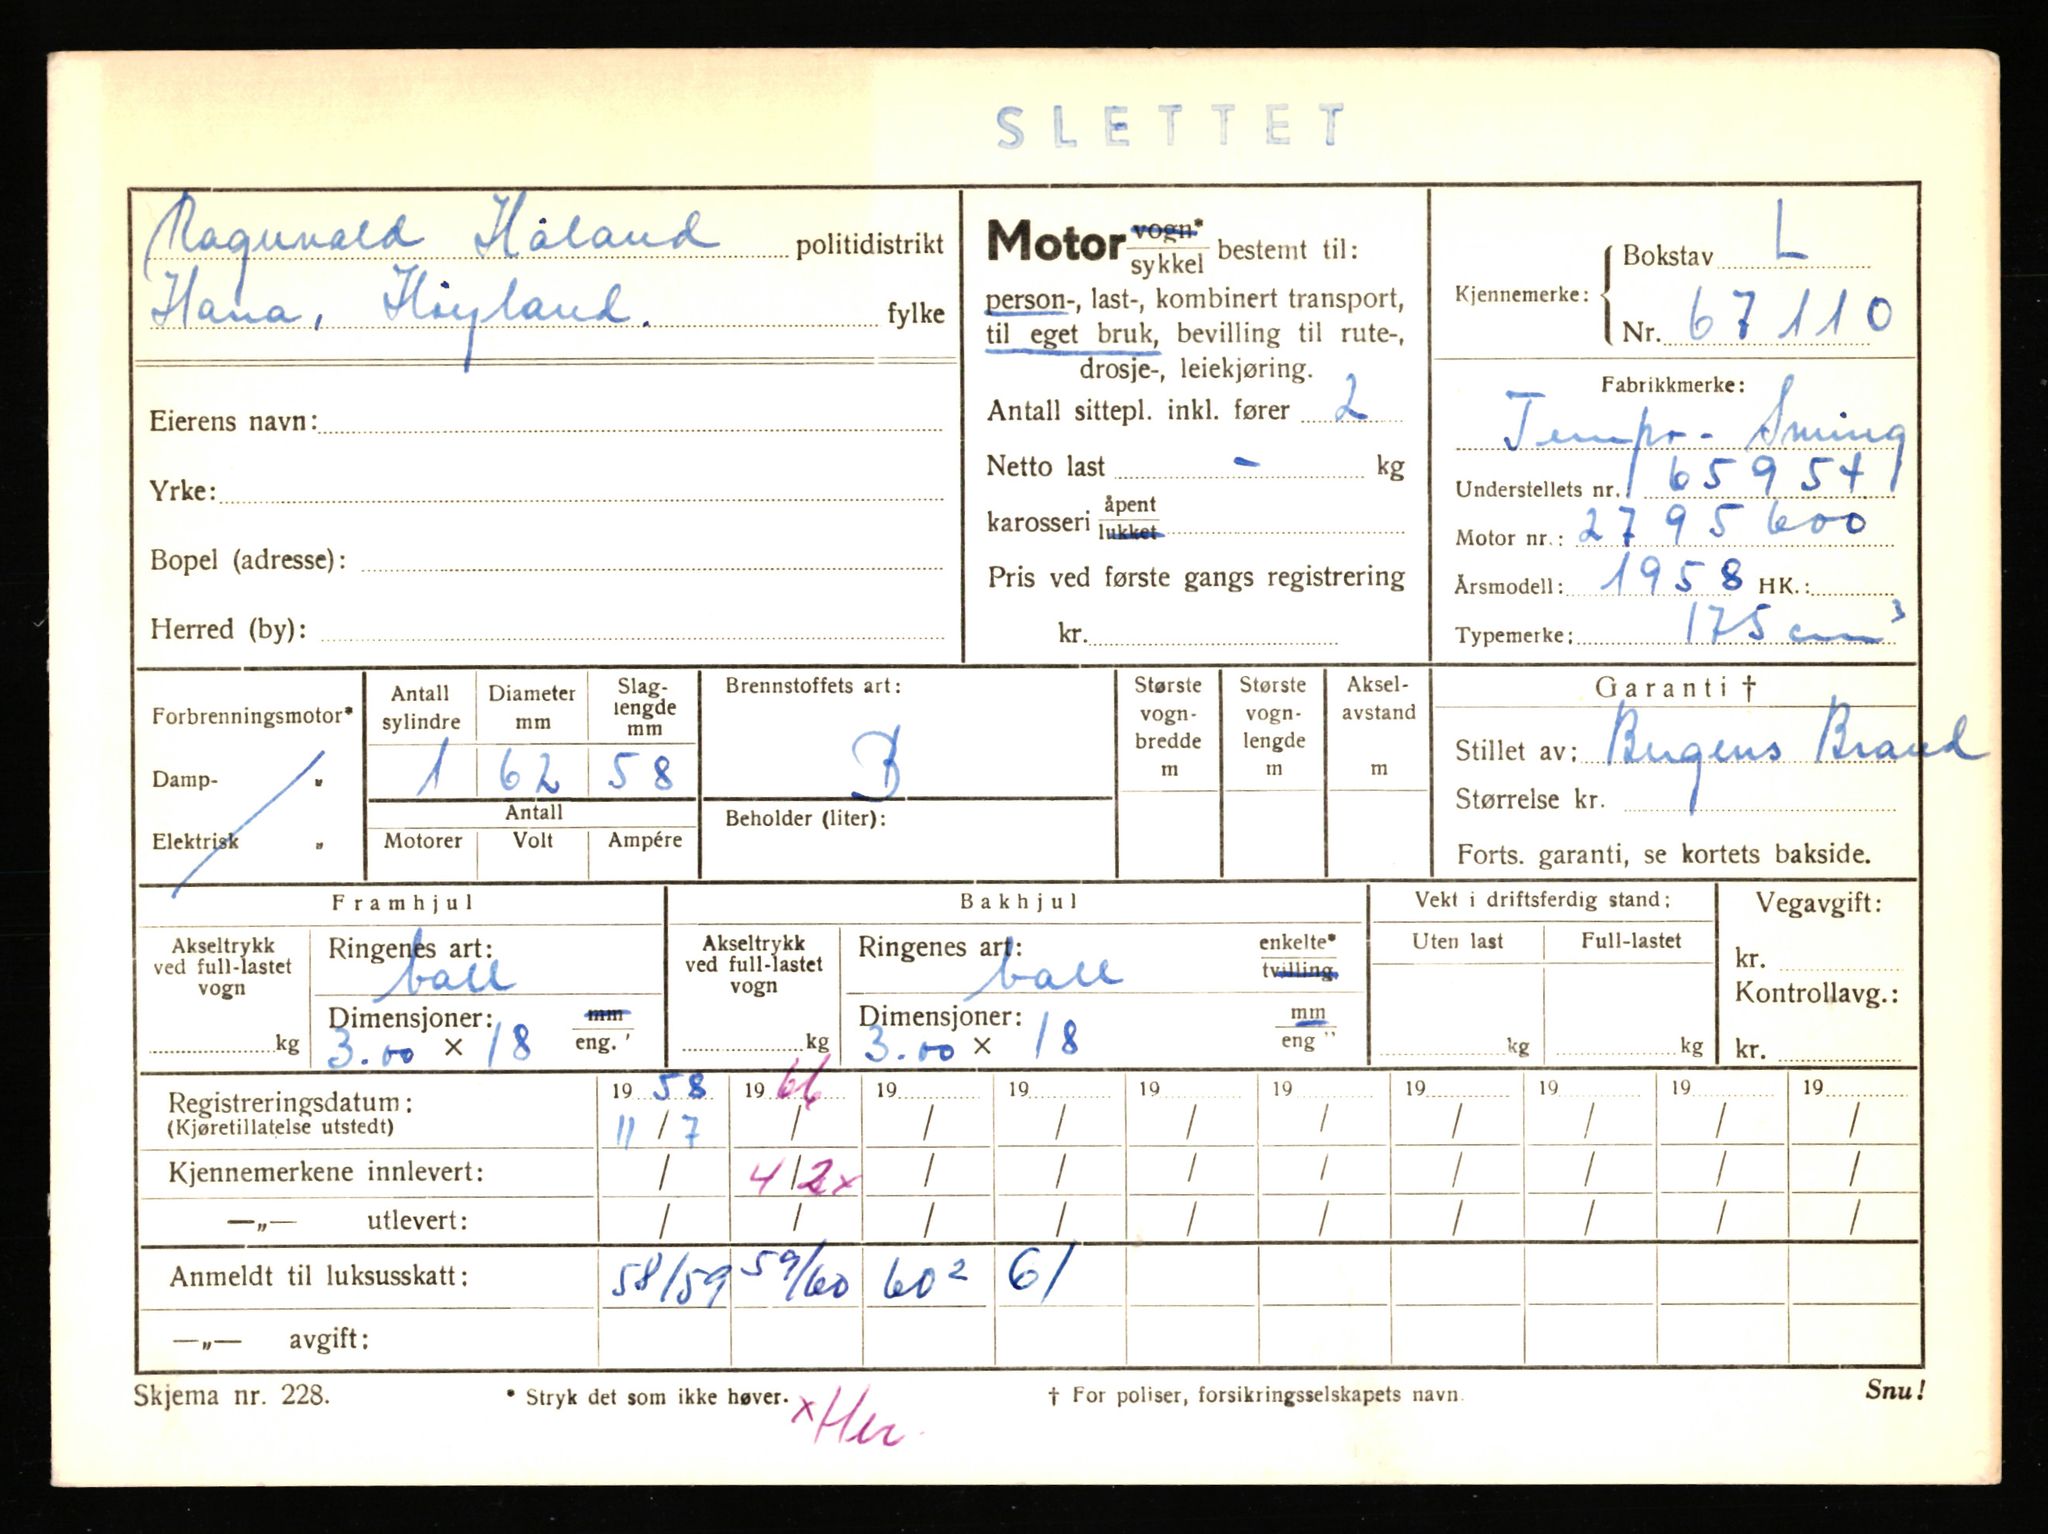 SLETTET
Ragnvald Håland politidistrikt
Hana, Höyland. fylke
Eierens navn:
Yrke:
Bopel (adresse):
Herred (by):
Motor vogn* sykkel bestemt til:
person-, last-, kombinert transport,
til eget bruk, bevilling til rute-,
drosje-, leiekjøring.
Antall sittepl. inkl. fører 2
Netto last - kg
karosseri åpent lukket
Pris ved første gangs registrering
kr.
Kjennemerke: Bokstav L
Nr. 67110
Fabrikkmerke:
Tempo - Swing
Understellets nr. 659541
Motor nr.: 2795600
Årsmodell: 1958 HK.:
Typemerke: 175 cm³
Forbrenningsmotor*
Damp- "
Elektrisk "
Antall sylindre 1
Diameter mm 62
Slaglengde mm 58
Antall
Motorer Volt Ampére
Brennstoffets art:
B
Beholder (liter):
Største vogn-bredde m
Største vogn-lengde m
Aksel-avstand m
Garanti †
Stillet av: Bergens Brand
Størrelse kr.
Forts. garanti, se kortets bakside.
Framhjul
Akseltrykk ved full-lastet vogn kg
Ringenes art: ball
Dimensjoner: mm eng. "
3.00 × 18
Bakhjul
Akseltrykk ved full-lastet vogn kg
Ringenes art: ball enkelte* tvilling
Dimensjoner: mm eng "
3.00 × 18
Vekt i driftsferdig stand:
Uten last Full-lastet
kg kg
Vegavgift:
kr.
Kontrollavg.:
kr.
Registreringsdatum: 19 58 19 66 19 19 19 19 19 19 19 19
(Kjøretillatelse utstedt) 11 / 7 / / / / / / / / /
Kjennemerkene innlevert: / 4 / 2 x / / / / / / / /
—„— utlevert: / / / / / / / / / /
Anmeldt til luksusskatt: 58/59 59/60 60² 61
—„— avgift:
Skjema nr. 228. * Stryk det som ikke høver. † For poliser, forsikringsselskapets navn. Snu!
x Her